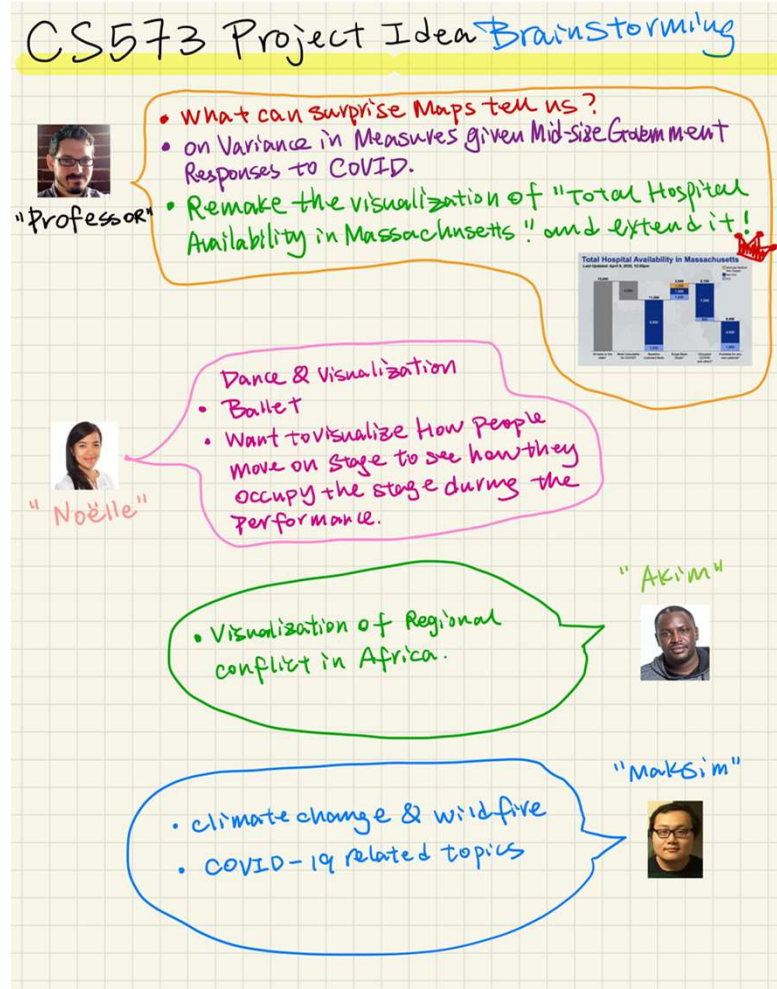 CS573 Project Idea Brainstorming
• What can surprise Maps tell us?
• on Variance in Measures given Mid-size Government
Responses to COVID.
• Remake the visualization of "Total Hospital
Availability in Massachusetts" and extend it!
"Professor"
Total Hospital Availability in Massachusetts
Dance & Visualization
• Ballet
• Want to visualize How people
move on stage to see how they
occupy the stage during the
performance.
"Noëlle"
"Akim"
• Visualization of Regional
conflict in Africa.
"Maksim"
• climate change & wildfire
• COVID-19 related topics